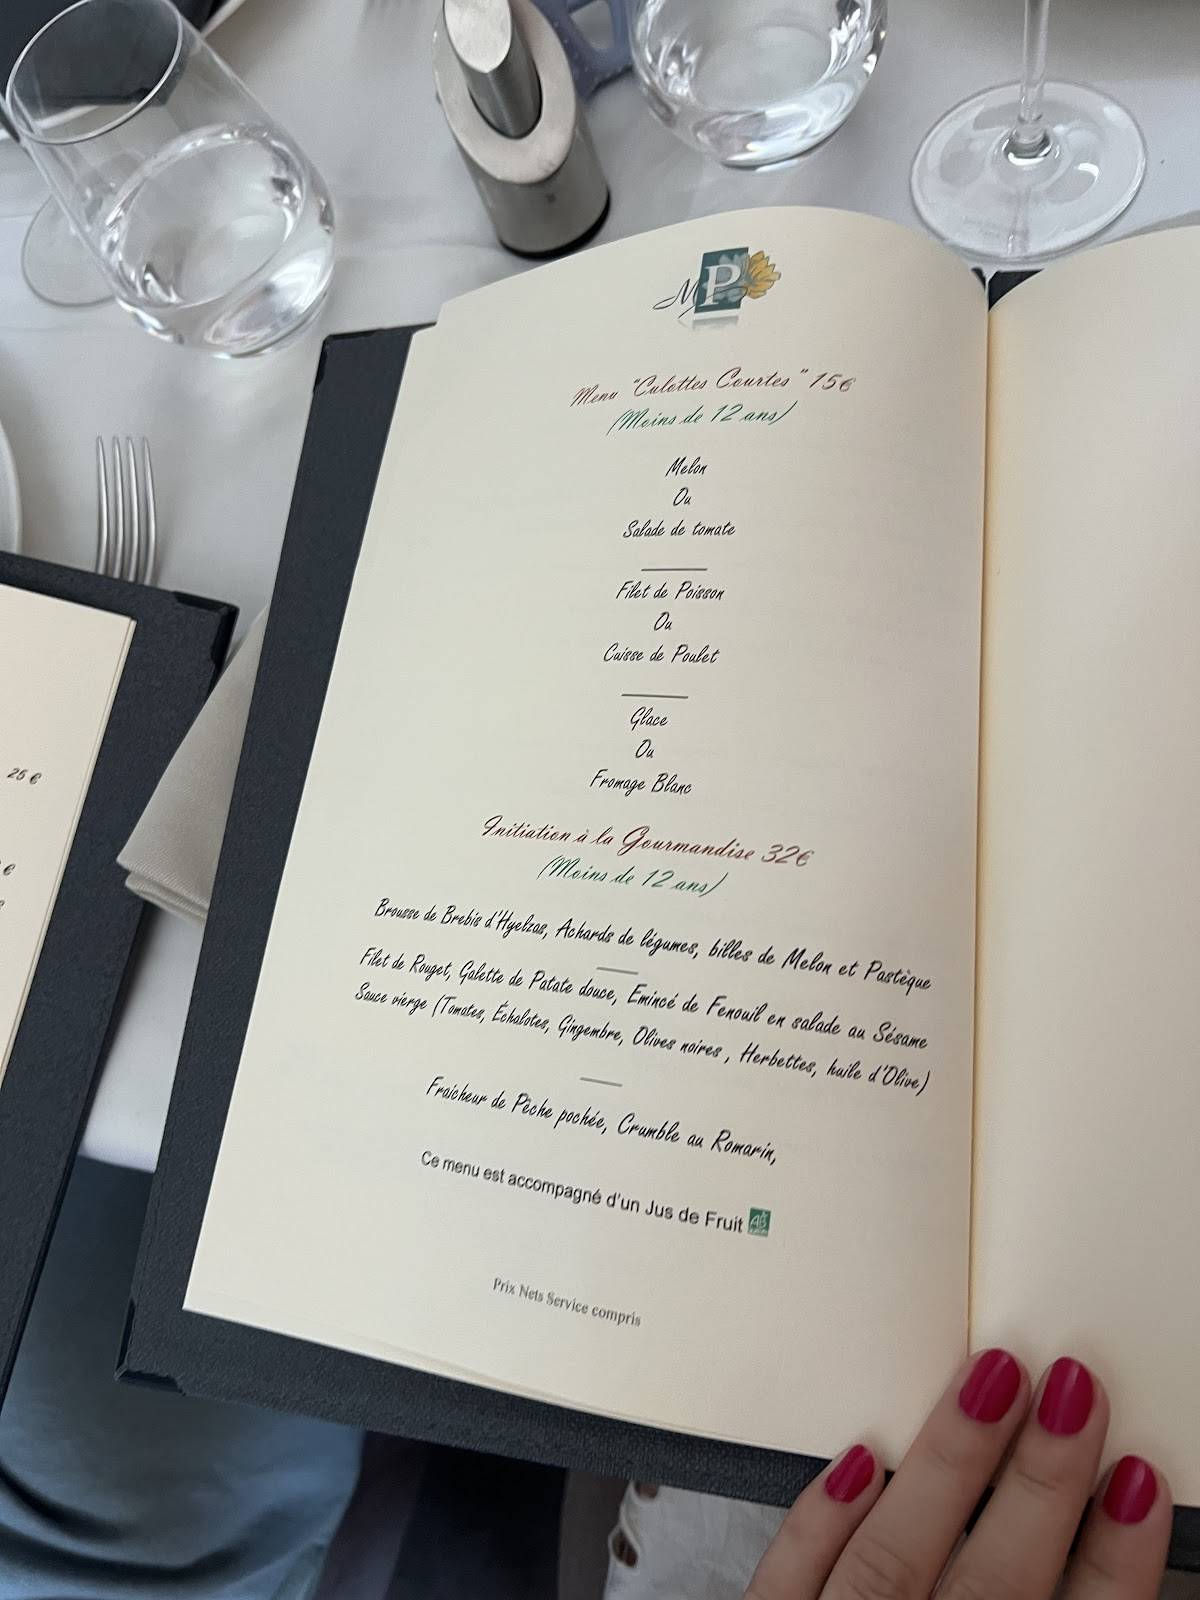 MP
Menu "Culottes Courtes" 15€
(Moins de 12 ans)
Melon
Ou
Salade de tomate
Filet de Poisson
Ou
Cuisse de Poulet
Glace
Ou
Fromage Blanc
Initiation à la Gourmandise 32€
(Moins de 12 ans)
Brousse de Brebis d'Hyelzas, Achards de légumes, billes de Melon et Pastèque
Filet de Rouget, Galette de Patate douce, Emincé de Fenouil en salade au Sésame
Sauce vierge (Tomates, Échalotes, Gingembre, Olives noires , Herbettes, huile d'Olive)
Fraicheur de Pêche pochée, Crumble au Romarin,
Ce menu est accompagné d'un Jus de Fruit AB
Prix Nets Service compris
25 €
€